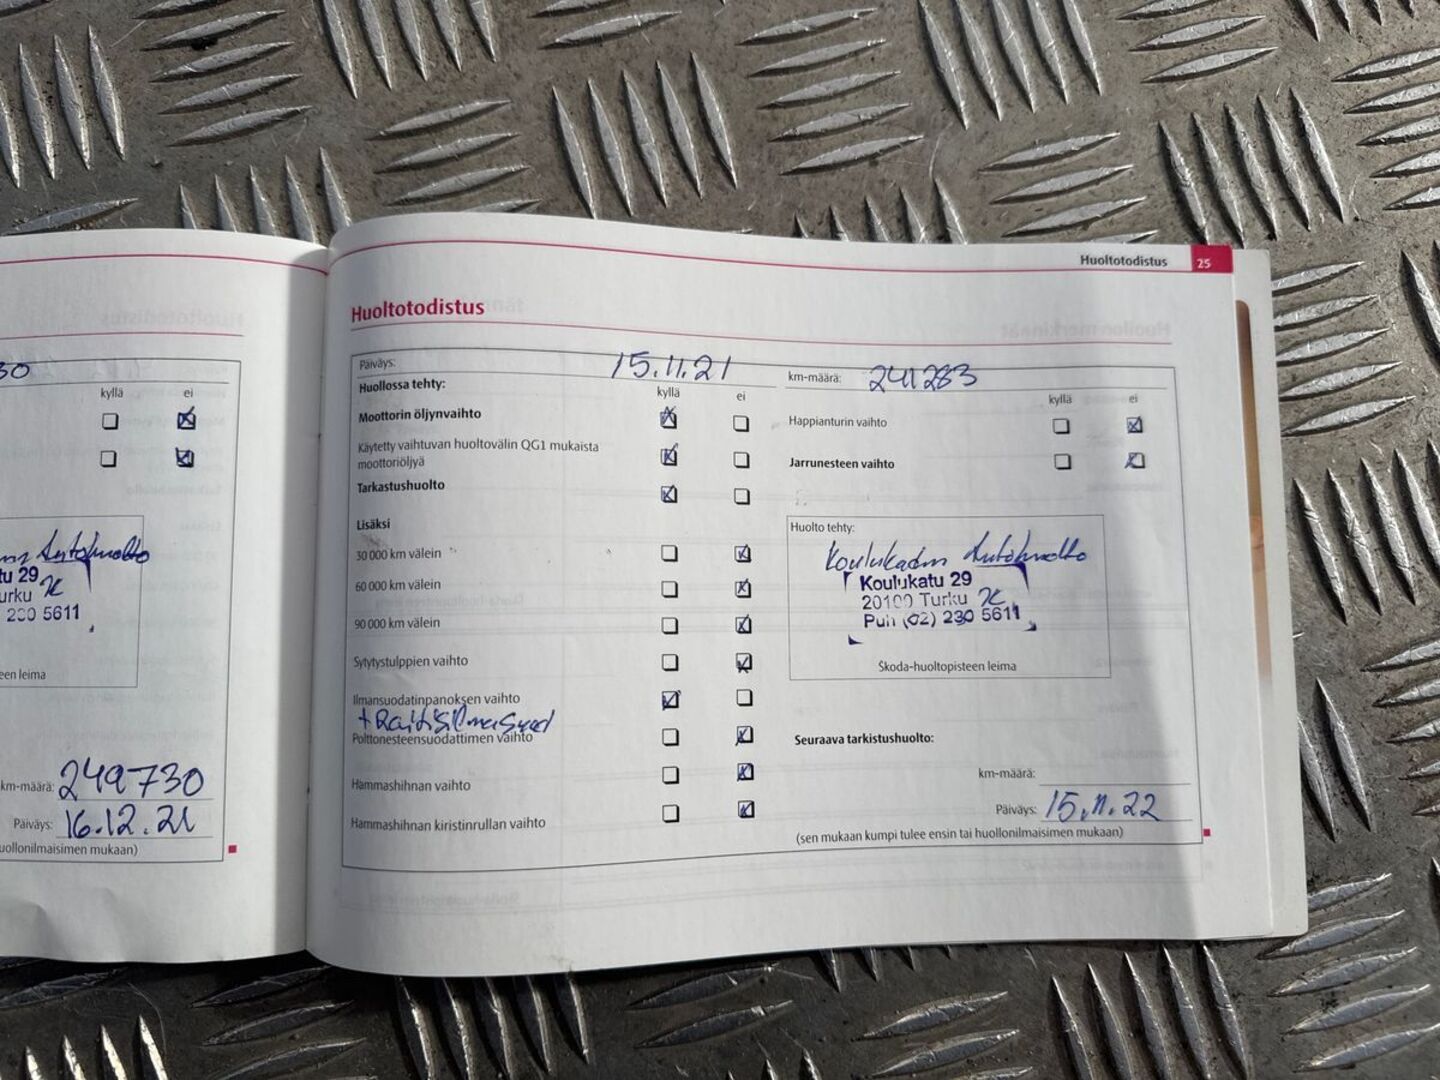 30
kyllä ei
Autohuolto
tu 29
urku
230 5611
een leima
km-määrä: 249730
Päiväys: 16.12.21
uollonilmaisimen mukaan)
Huoltotodistus 25
Huoltotodistus
Päiväys: 15.11.21
km-määrä: 241283
Huollossa tehty: kyllä ei
Moottorin öljynvaihto
Käytetty vaihtuvan huoltovälin QG1 mukaista
moottoriöljyä
Tarkastushuolto
Lisäksi
30 000 km välein
60 000 km välein
90 000 km välein
Sytytystulppien vaihto
Ilmansuodatinpanoksen vaihto
+ Raitisilmasuod
Polttonesteensuodattimen vaihto
Hammashihnan vaihto
Hammashihnan kiristinrullan vaihto
kyllä ei
Happianturin vaihto
Jarrunesteen vaihto
Huolto tehty:
Koulukadun Autohuolto
Koulukatu 29
20100 Turku
Puh (02) 230 5611
Škoda-huoltopisteen leima
Seuraava tarkistushuolto:
km-määrä:
Päiväys: 15.11.22
(sen mukaan kumpi tulee ensin tai huollonilmaisimen mukaan)